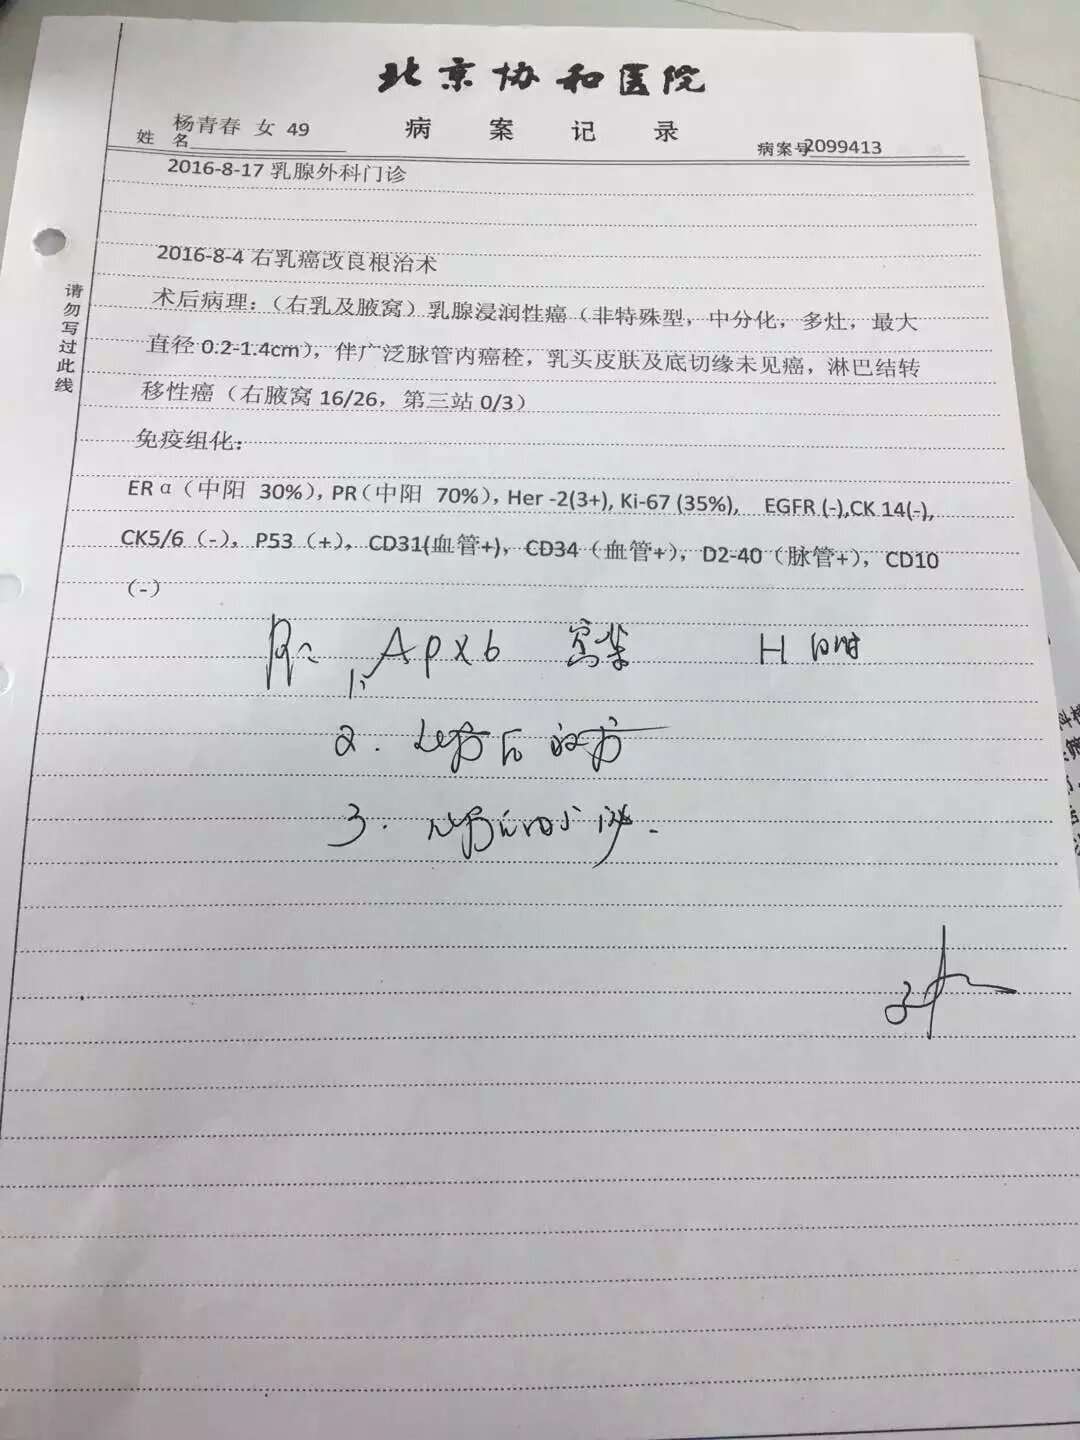 北京协和医院
病案记录
姓名 杨青春 女 49
病案号2099413
2016-8-17 乳腺外科门诊
请勿写过此线
2016-8-4 右乳癌改良根治术
术后病理：（右乳及腋窝）乳腺浸润性癌（非特殊型，中分化，多灶，最大
直径 0.2-1.4cm），伴广泛脉管内癌栓，乳头皮肤及底切缘未见癌，淋巴结转
移性癌（右腋窝 16/26，第三站 0/3）
免疫组化：
ERα（中阳 30%），PR（中阳 70%），Her -2(3+), Ki-67 (35%), EGFR (-),CK 14(-),
CK5/6（-），P53（+），CD31(血管+)，CD34（血管+），D2-40（脉管+），CD10
（-）
1. APX6 H
2. 化疗后放疗
3.